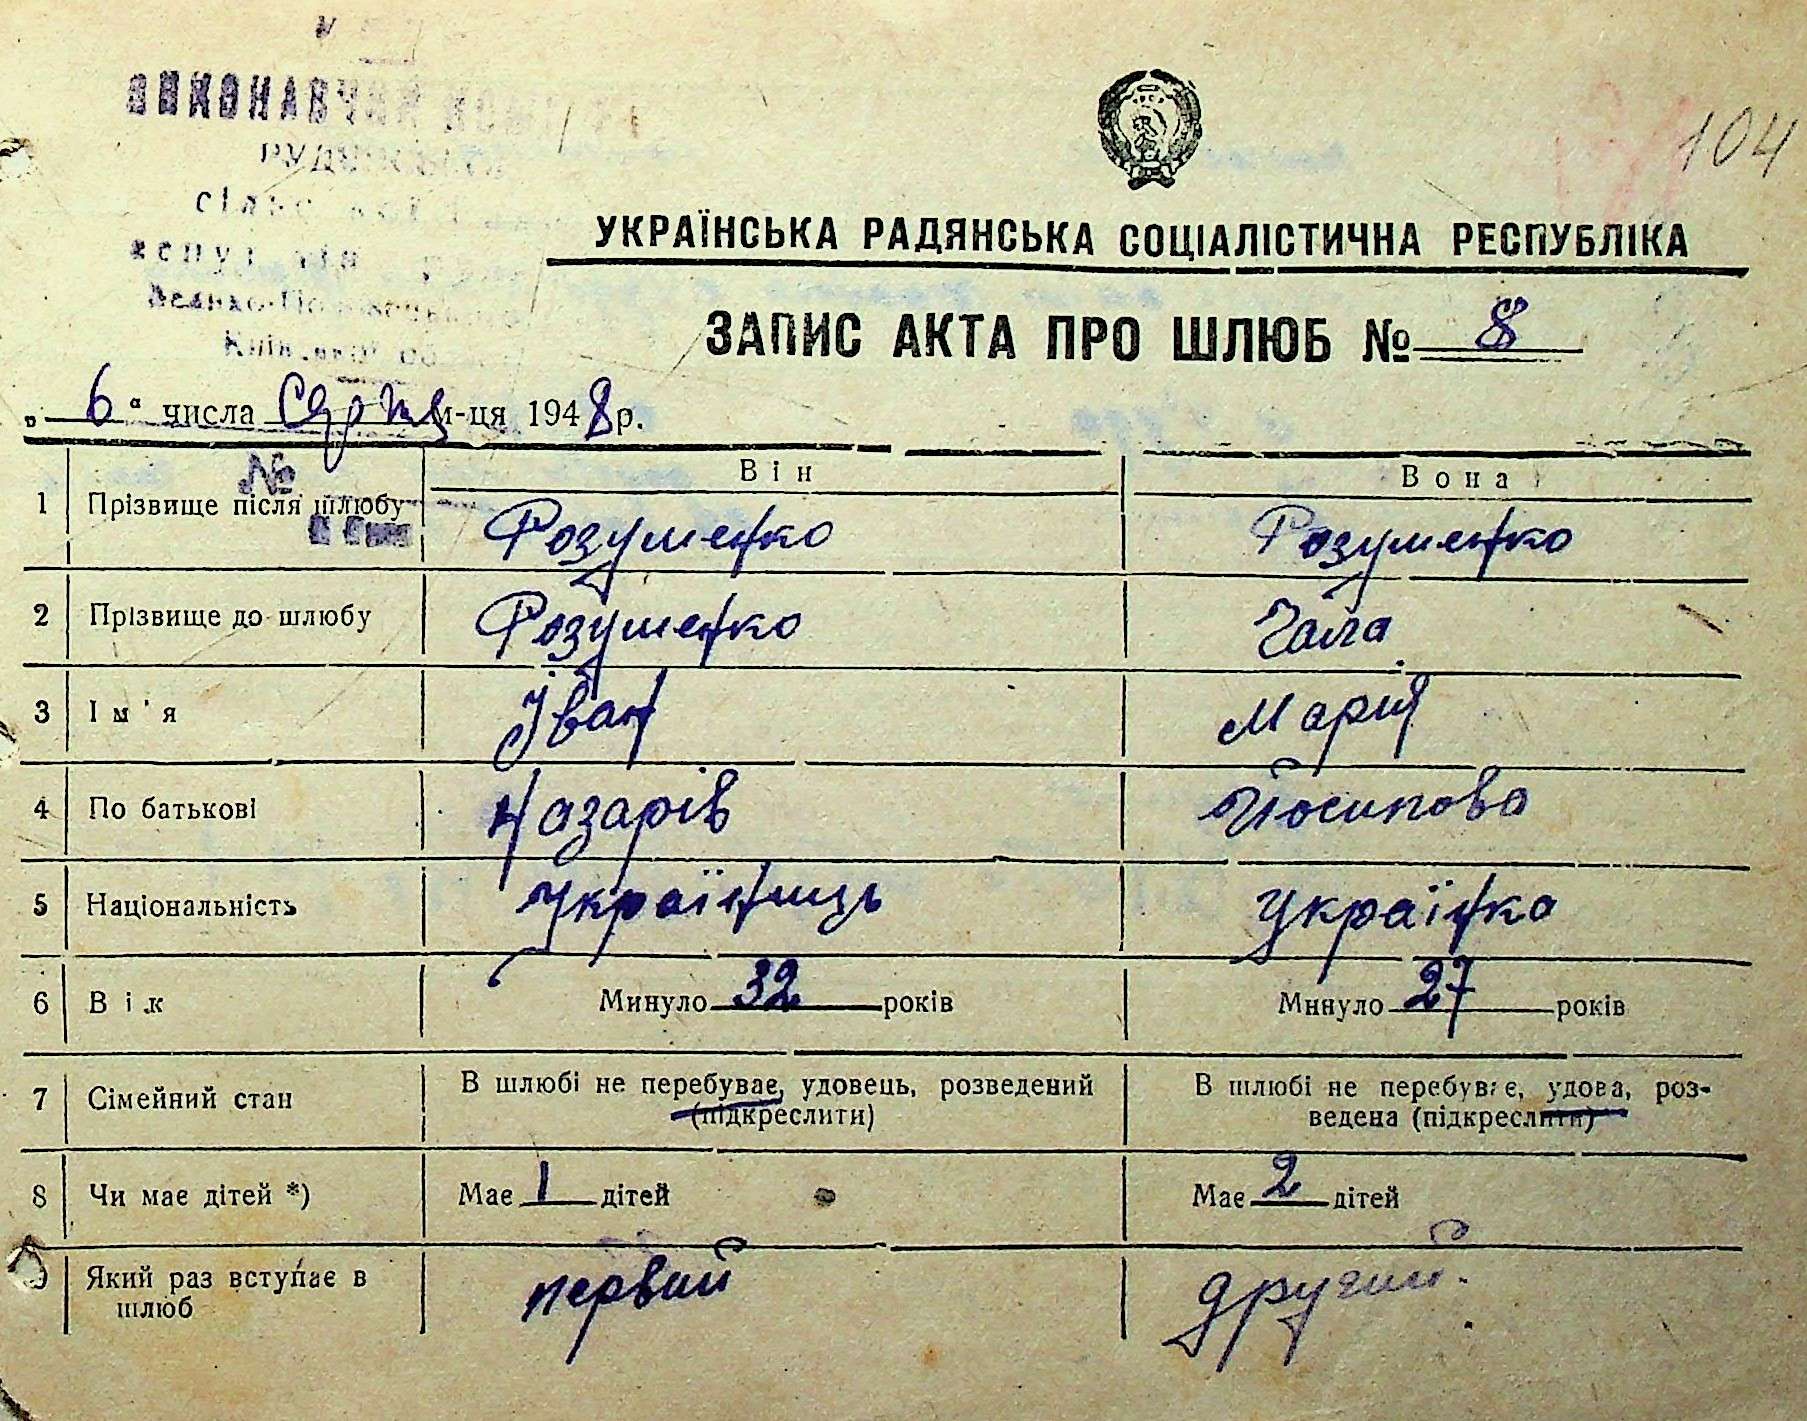 104
УКРАЇНСЬКА РАДЯНСЬКА СОЦІАЛІСТИЧНА РЕСПУБЛІКА
ЗАПИС АКТА ПРО ШЛЮБ № 8
„ 6 “ числа Серпня м-ця 1948 р.
№
Він Вона
1 Прізвище після шлюбу Розуменко Розуменко
2 Прізвище до шлюбу Розуменко Чала
3 Ім'я Іван Мария
4 По батькові Назарів Йосипова
5 Національність Україниць Українка
6 Вік Минуло 32 років Минуло 27 років
7 Сімейний стан В шлюбі не перебуває, удовець, розведений В шлюбі не перебуває, удова, роз-
(підкреслити) ведена (підкреслити)
8 Чи має дітей *) Має 1 дітей Має 2 дітей
9 Який раз вступає в первий другий.
шлюб